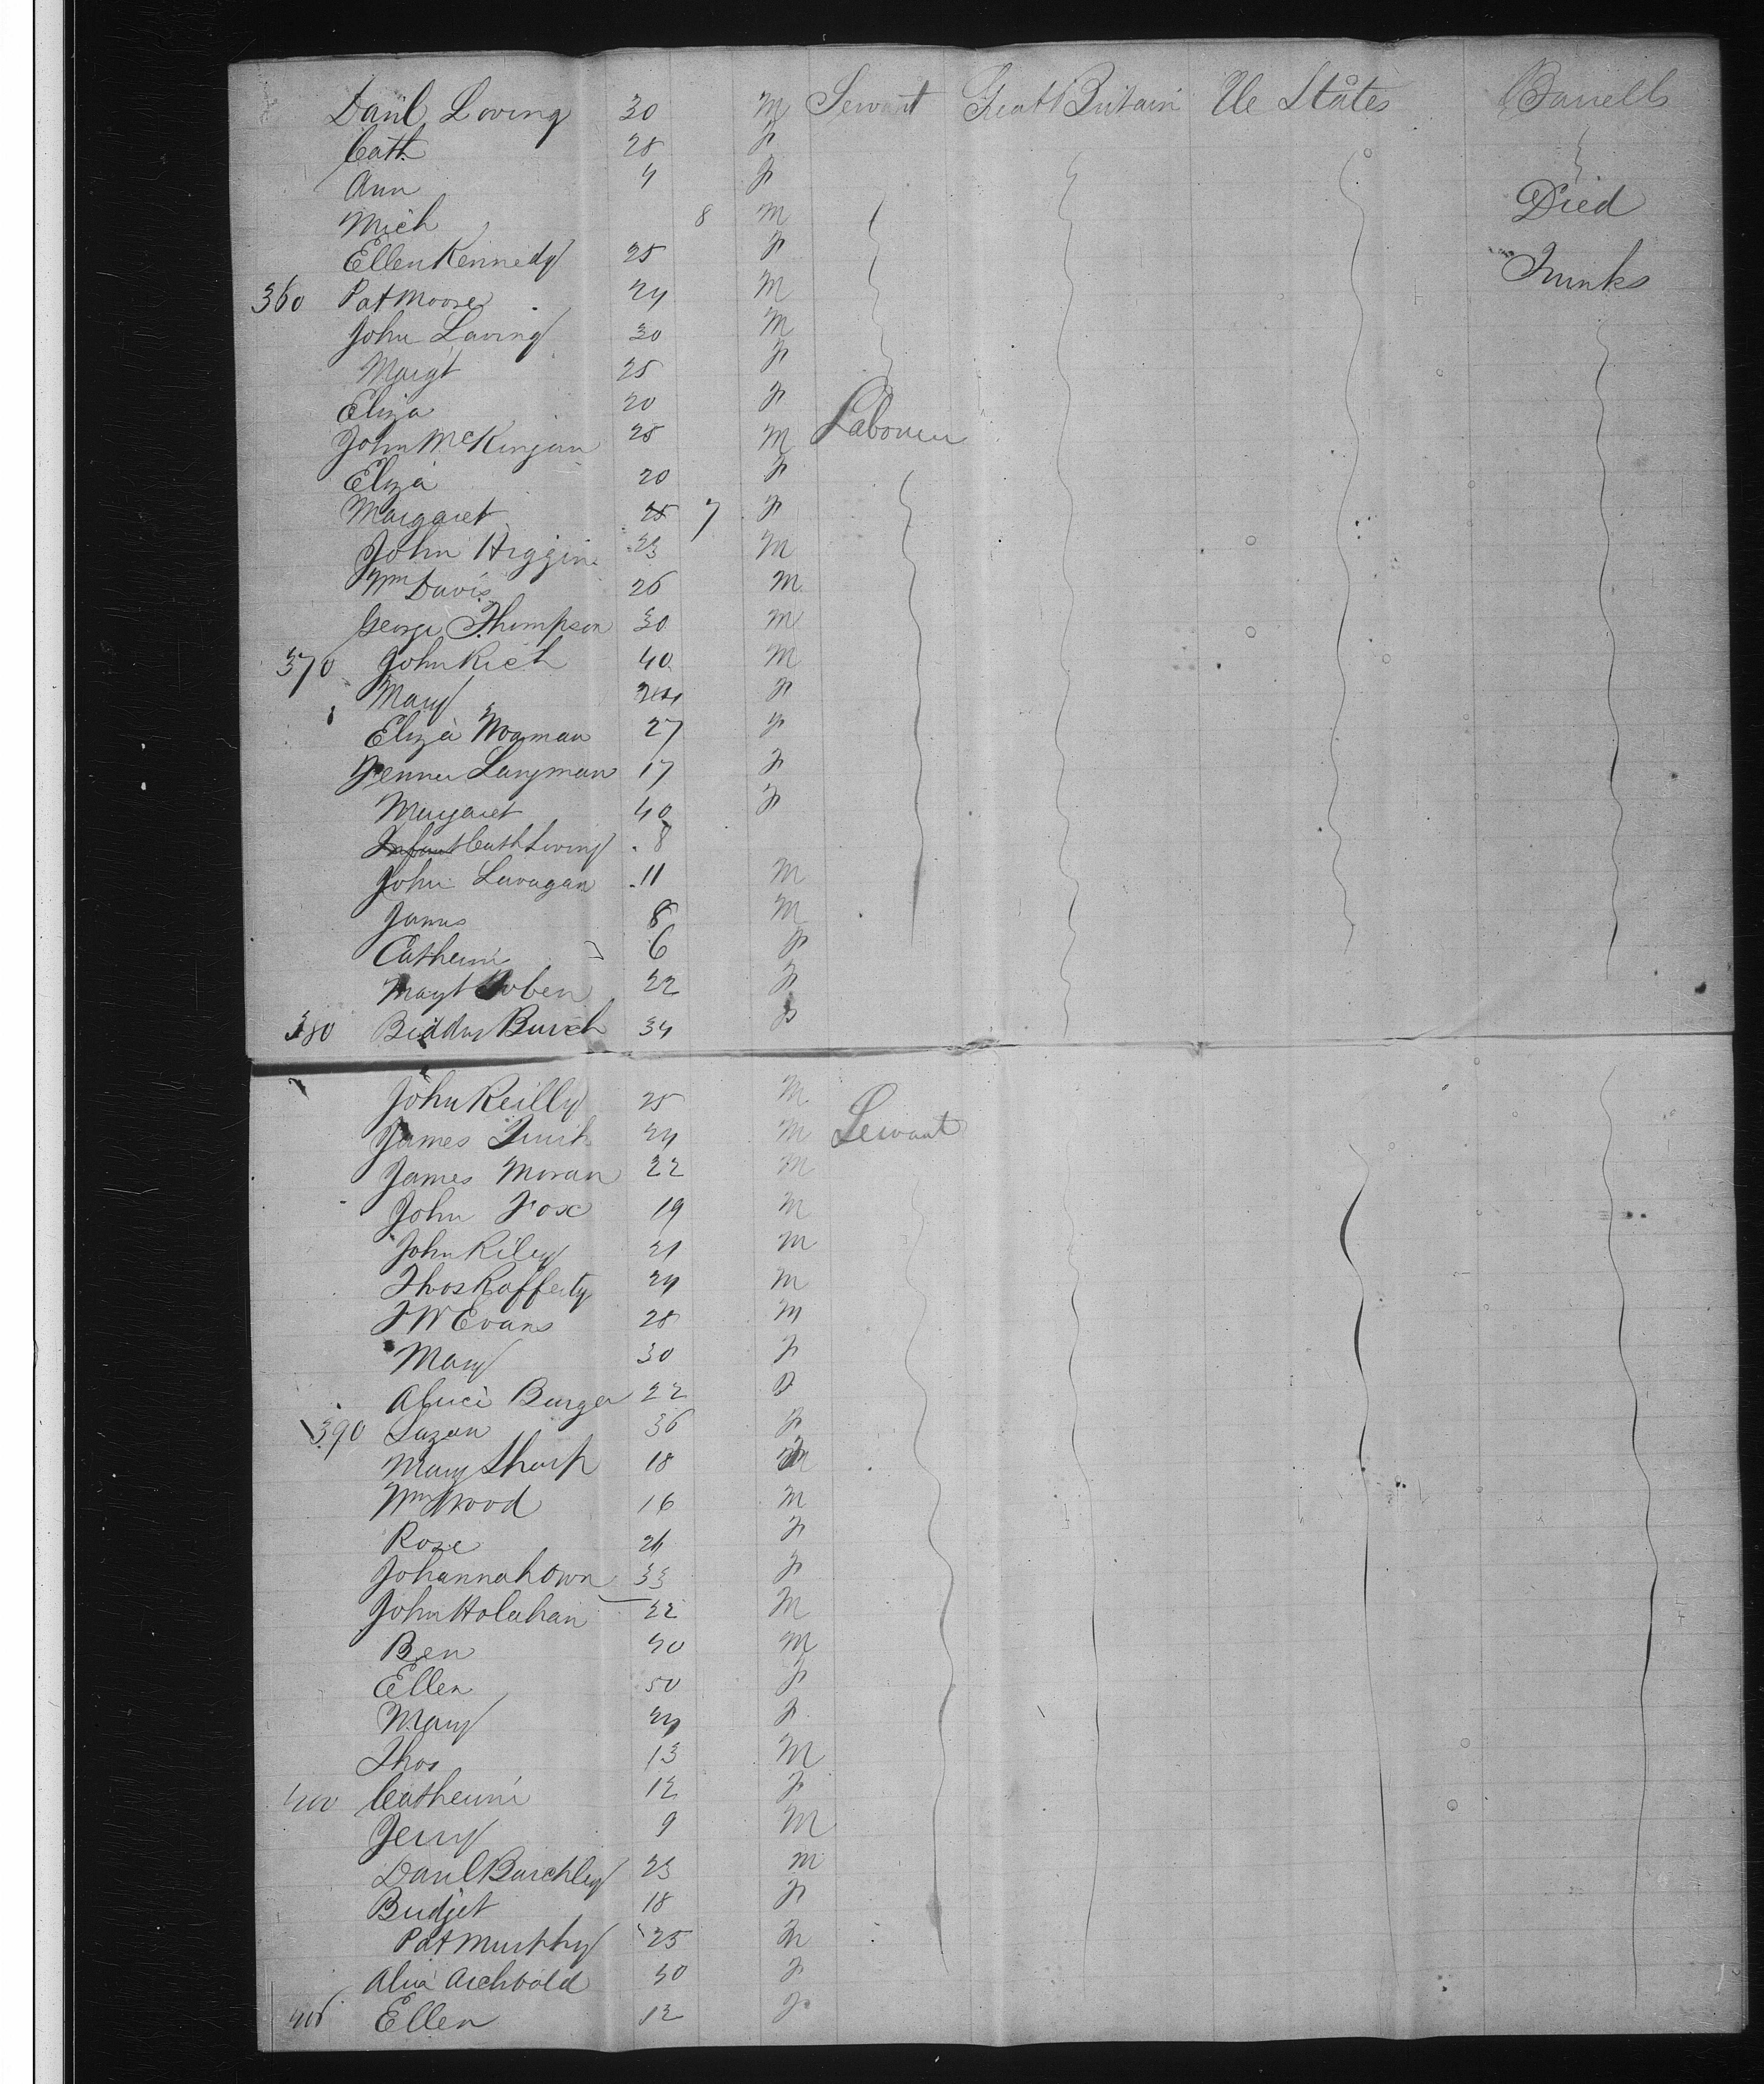 Danl Loving 30 M Servant Great Britain Ue States Barrells
Cath 28 F
Ann 4 F
Mich 8 M Died
Ellen Kennedy 25 F
360 Pat Moore 24 M Trunks
John Laving 30 M
Margt 25 F
Eliza 20 F
John McKinjun 28 M Labourer
Eliza 20 F
Margaret 25 7 F
John Higgin 23 M
Wm Davis 26 M
George Thompson 30 M
370 John Rich 40 M
Mary F
Eliza Woman 27 F
Jenner Langman 17 F
Margaret 40 F
Infant Cath Loving 8
John Lavagan 11 M
James 8 M
Catherine 6 F
Magt 22 F
380 Biddy Burch 34 F
John Reilly 25 M
James Smith 24 M Servant
James Moran 22 M
John Fox 19 M
John Riley 21 M
Thos Rafferty 24 M
J W Evans 28 M
Mary 30 F
Alice Burger 22 F
390 Suzan 36 F
Mary Sharp 18
Wm Wood 16 M
Rose 26 F
Johannah Own 33 F
John Holahan 22 M
Ben 40 M
Ellen 50 F
Mary 24 F
Thos 13 M
400 Catherine 12 F
Jerry 9 M
Danl Burchley 23 M
Budjet 18 F
Pat Murphy 25 M
Alice Archbold 30 F
406 Ellen 12 F